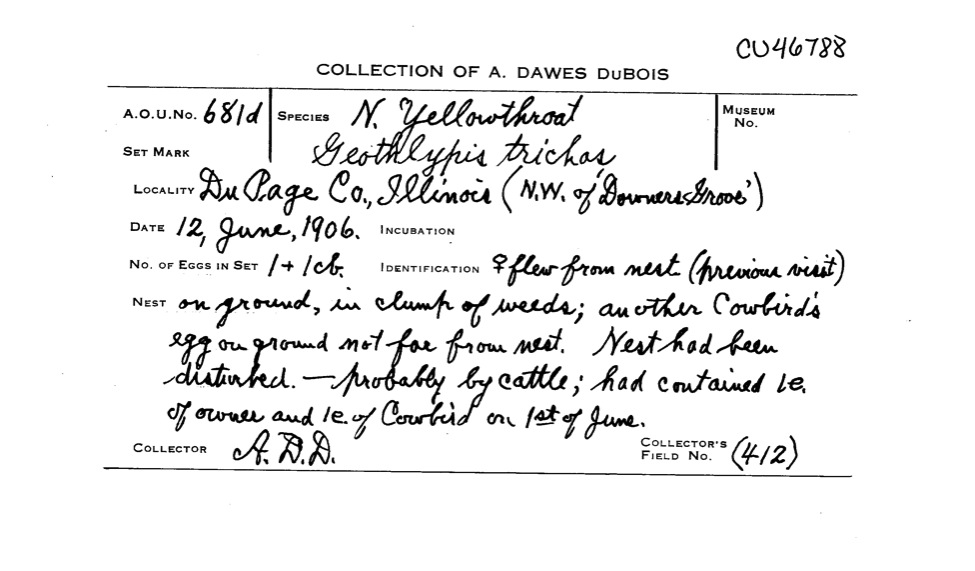 CU46788
COLLECTION OF A. DAWES DuBOIS
A.O.U.No. 681d SPECIES N. Yellowthroat MUSEUM No.
SET MARK Geothlypis trichas
LOCALITY Du Page Co., Illinois (N.W. of 'Downers Grove')
DATE 12, June, 1906. INCUBATION
No. OF EGGS IN SET 1 + 1cb. IDENTIFICATION ♀ flew from nest (previous visit)
NEST on ground, in clump of weeds; another Cowbird's
egg on ground not far from nest. Nest had been
disturbed. — probably by cattle; had contained 1e.
of owner and 1e. of Cowbird on 1st of June.
COLLECTOR A. D. D. COLLECTOR'S FIELD No. (412)